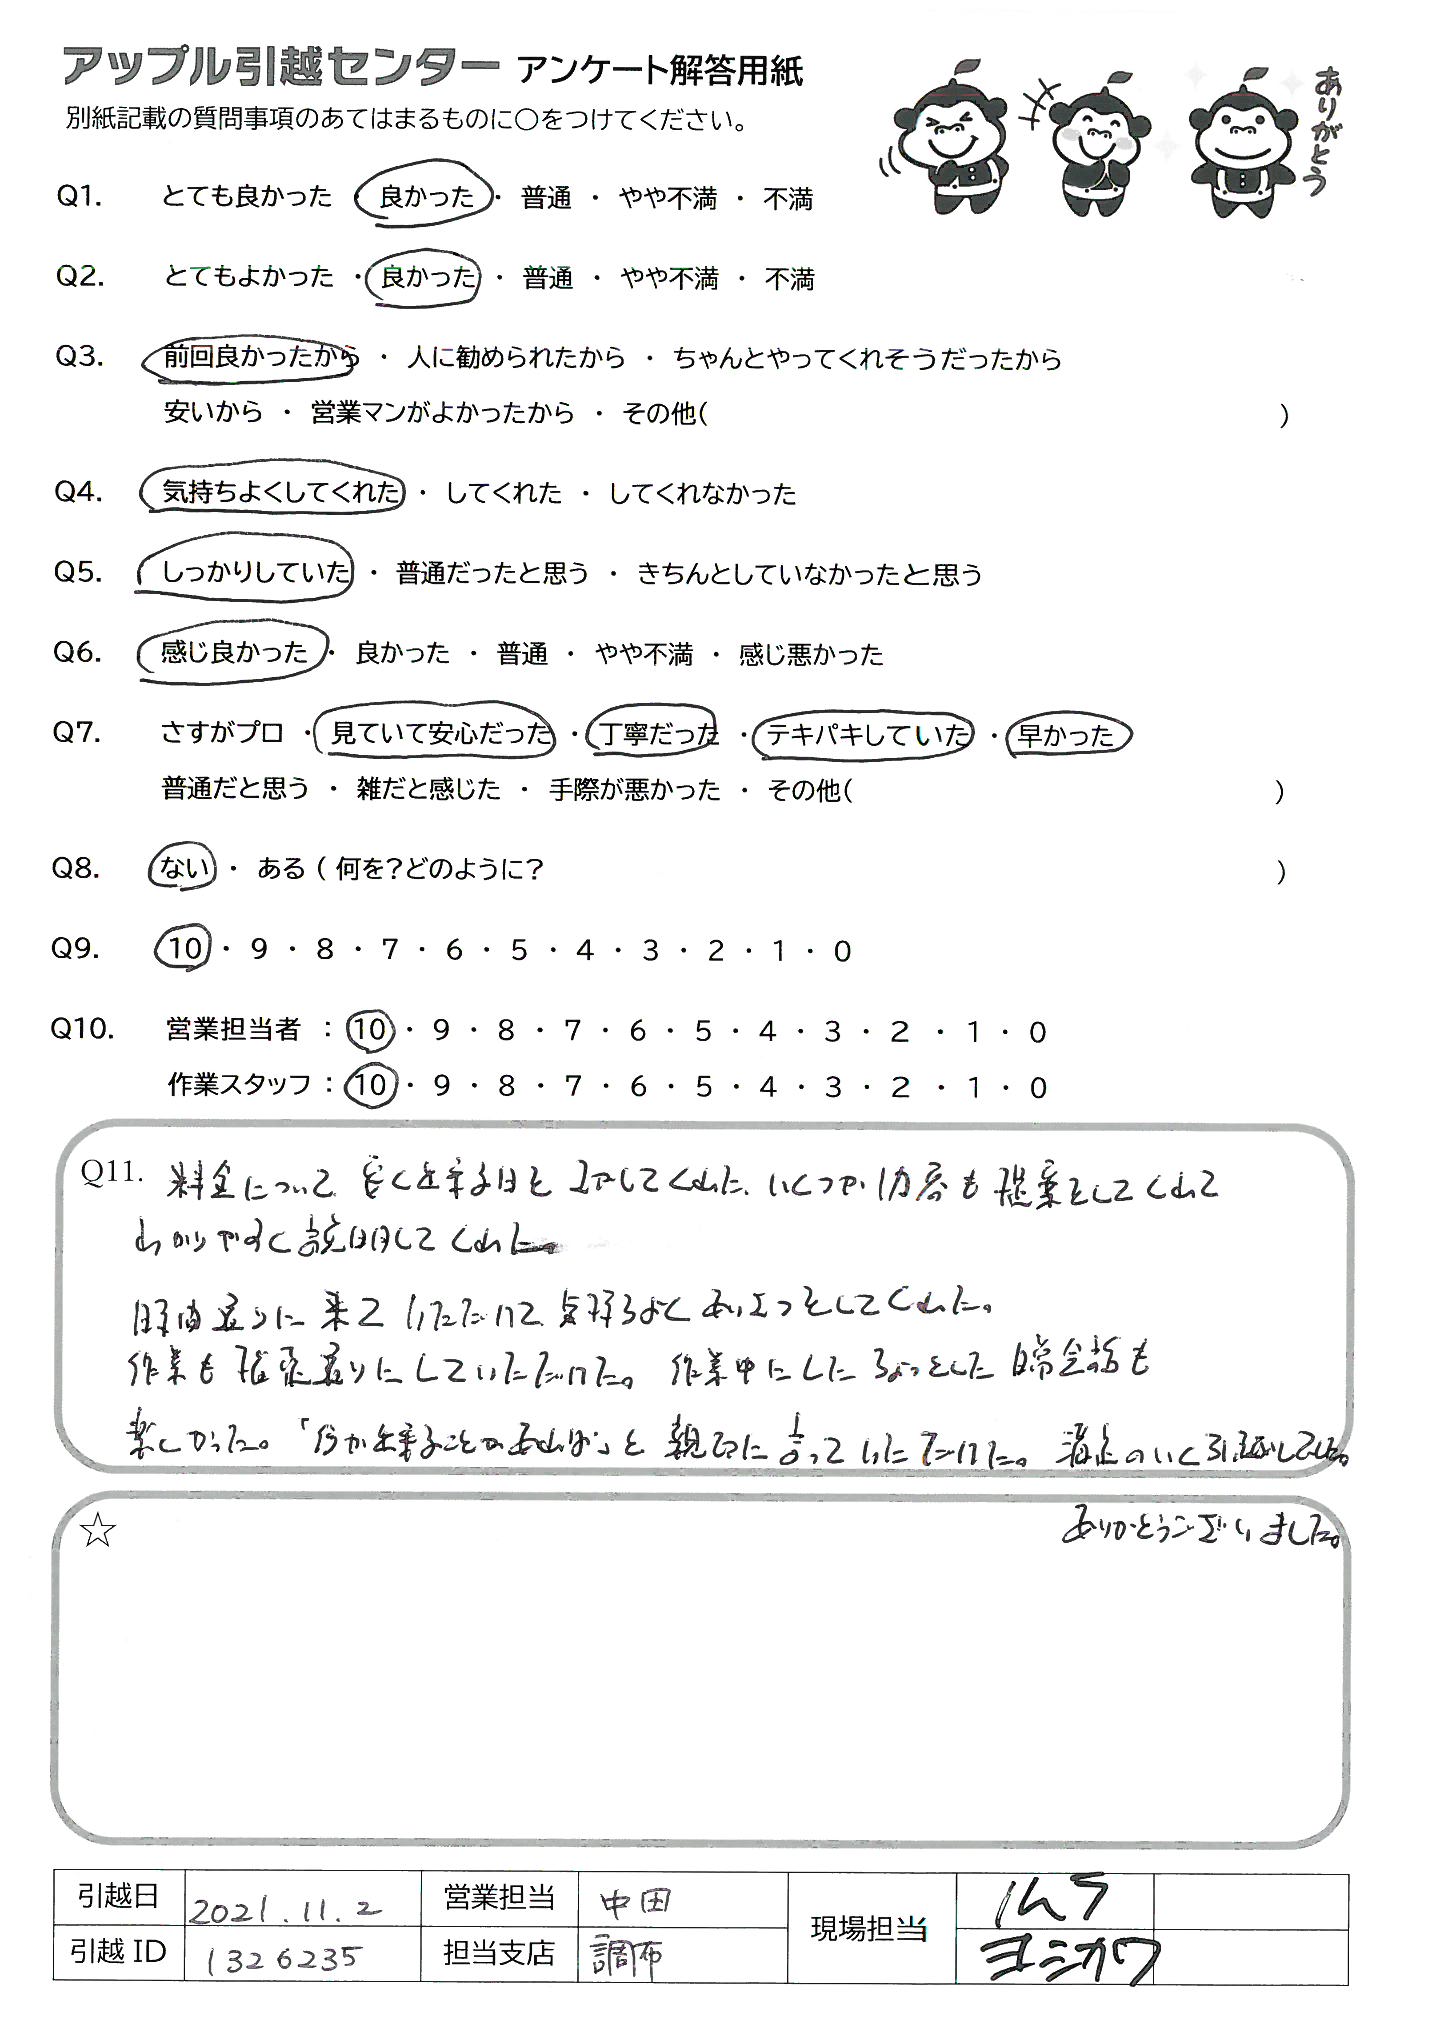 アップル引越センター アンケート解答用紙
別紙記載の質問事項のあてはまるものに○をつけてください。
ありがとう
Q1. とても良かった 良かった ・ 普通 ・ やや不満 ・ 不満
Q2. とてもよかった ・ 良かった ・ 普通 ・ やや不満 ・ 不満
Q3. 前回良かったから ・ 人に勧められたから ・ ちゃんとやってくれそうだったから
安いから ・ 営業マンがよかったから ・ その他( )
Q4. 気持ちよくしてくれた ・ してくれた ・ してくれなかった
Q5. しっかりしていた ・ 普通だったと思う ・ きちんとしていなかったと思う
Q6. 感じ良かった ・ 良かった ・ 普通 ・ やや不満 ・ 感じ悪かった
Q7. さすがプロ ・ 見ていて安心だった ・ 丁寧だった ・ テキパキしていた ・ 早かった
普通だと思う ・ 雑だと感じた ・ 手際が悪かった ・ その他( )
Q8. ない ・ ある ( 何を?どのように? )
Q9. 10 ・ 9 ・ 8 ・ 7 ・ 6 ・ 5 ・ 4 ・ 3 ・ 2 ・ 1 ・ 0
Q10. 営業担当者 : 10 ・ 9 ・ 8 ・ 7 ・ 6 ・ 5 ・ 4 ・ 3 ・ 2 ・ 1 ・ 0
作業スタッフ : 10 ・ 9 ・ 8 ・ 7 ・ 6 ・ 5 ・ 4 ・ 3 ・ 2 ・ 1 ・ 0
Q11. 料金について、安く出来る日を してくれた、いくつか内容も提案をしてくれて
わかりやすく説明してくれた
時間通りに来ていただいて、気持ちよくあいさつをしてくれた。
作業も 通りにしていただけた。作業中にしたちょっとした日常会話も
楽しかった。「何か出来ることがあれば」と親切に言っていただけた。満足のいく引越しでした。
☆ ありがとうございました。
引越日 2021.11.2 営業担当 中田 現場担当
引越 ID 1326235 担当支店 調布 ヨシカワ